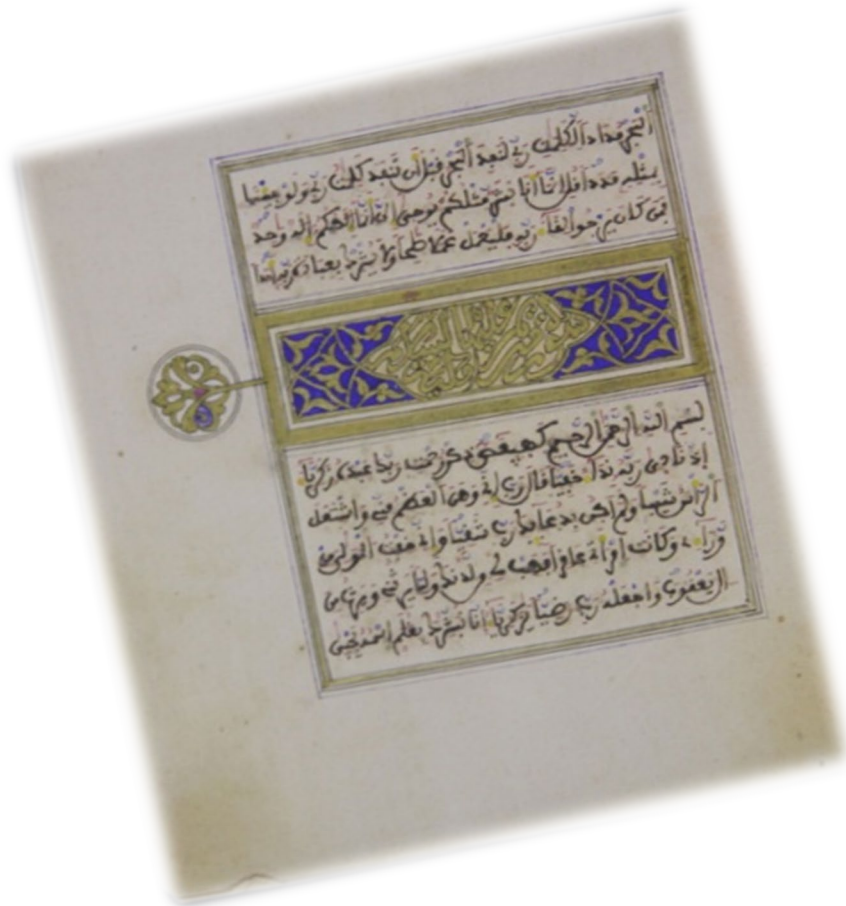 البحر مدادا لكلمت ربي لنفد البحر قبل أن تنفد كلمت ربي ولو جئنا
بمثله مددا قل إنما أنا بشر مثلكم يوحى إلي أنما إلهكم إله وحد
فمن كان يرجوا لقاء ربه فليعمل عملا صلحا ولا يشرك بعبادة ربه أحدا
بسم الله الرحمن الرحيم كهيعص ذكر رحمت ربك عبده زكرياء
إذ نادى ربه نداء خفيا قال رب إني وهن العظم مني واشتعل
الرأس شيبا ولم أكن بدعائك رب شقيا وإني خفت المولي من
وراءي وكانت امرأتي عاقرا فهب لي من لدنك وليا يرثني ويرث من
ال يعقوب واجعله رب رضيا يزكرياء إنا نبشرك بغلم اسمه يحيى